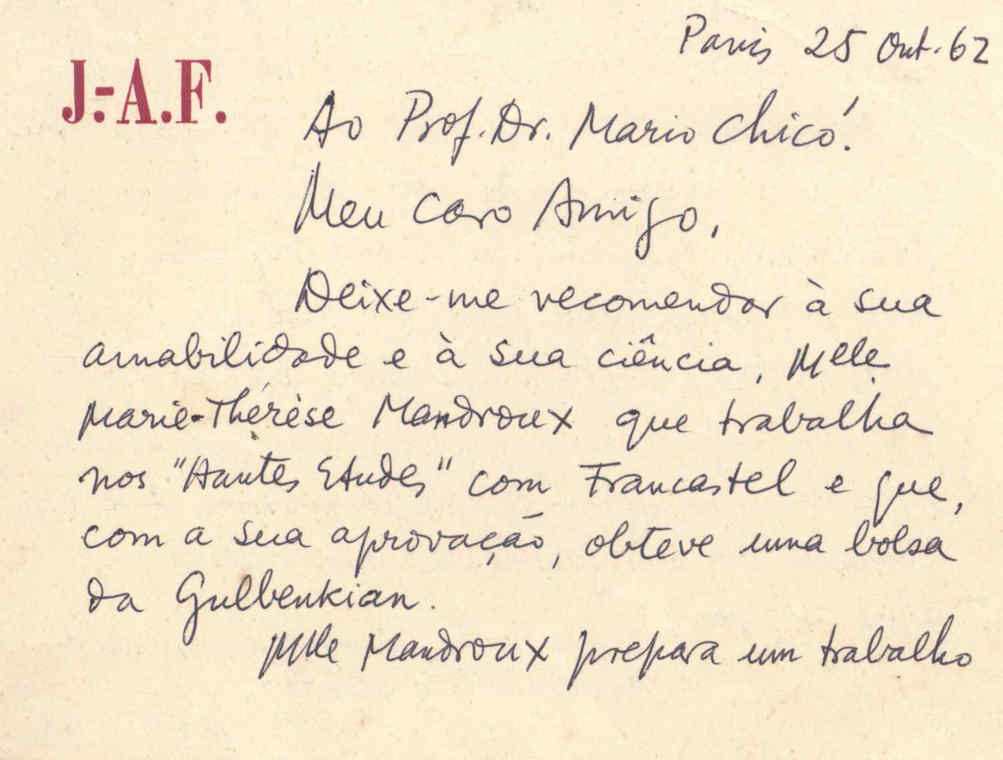 Paris 25 Out. 62
J.-A.F.
Ao Prof. Dr. Mario Chicó.
Meu Caro Amigo,
Deixe-me recomendar à sua
amabilidade e à sua ciência, Mlle
Marie-Thérèse Mandroux que trabalha
nos "Hautes Etudes" com Francastel e que,
com a sua aprovação, obteve uma bolsa
da Gulbenkian.
Mlle Mandroux prepara um trabalho